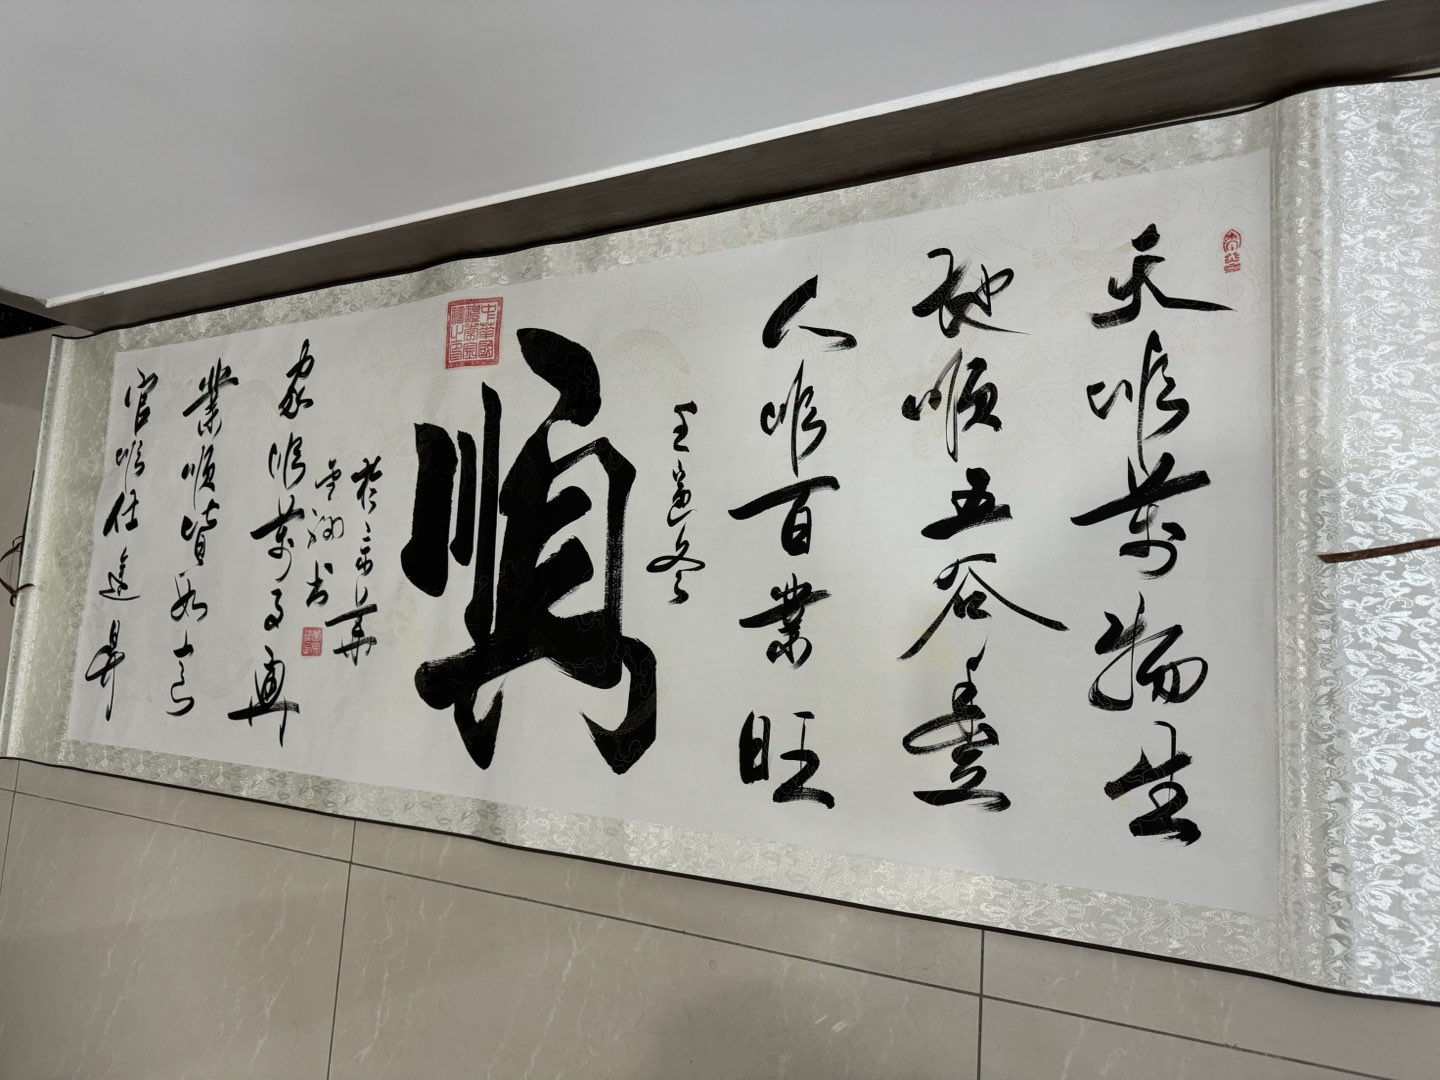 天順萬物生
地順五谷豐
人順百業旺
壬寅冬
順
於京華
書
家順萬事興
業順皆如意
官順仕進昇